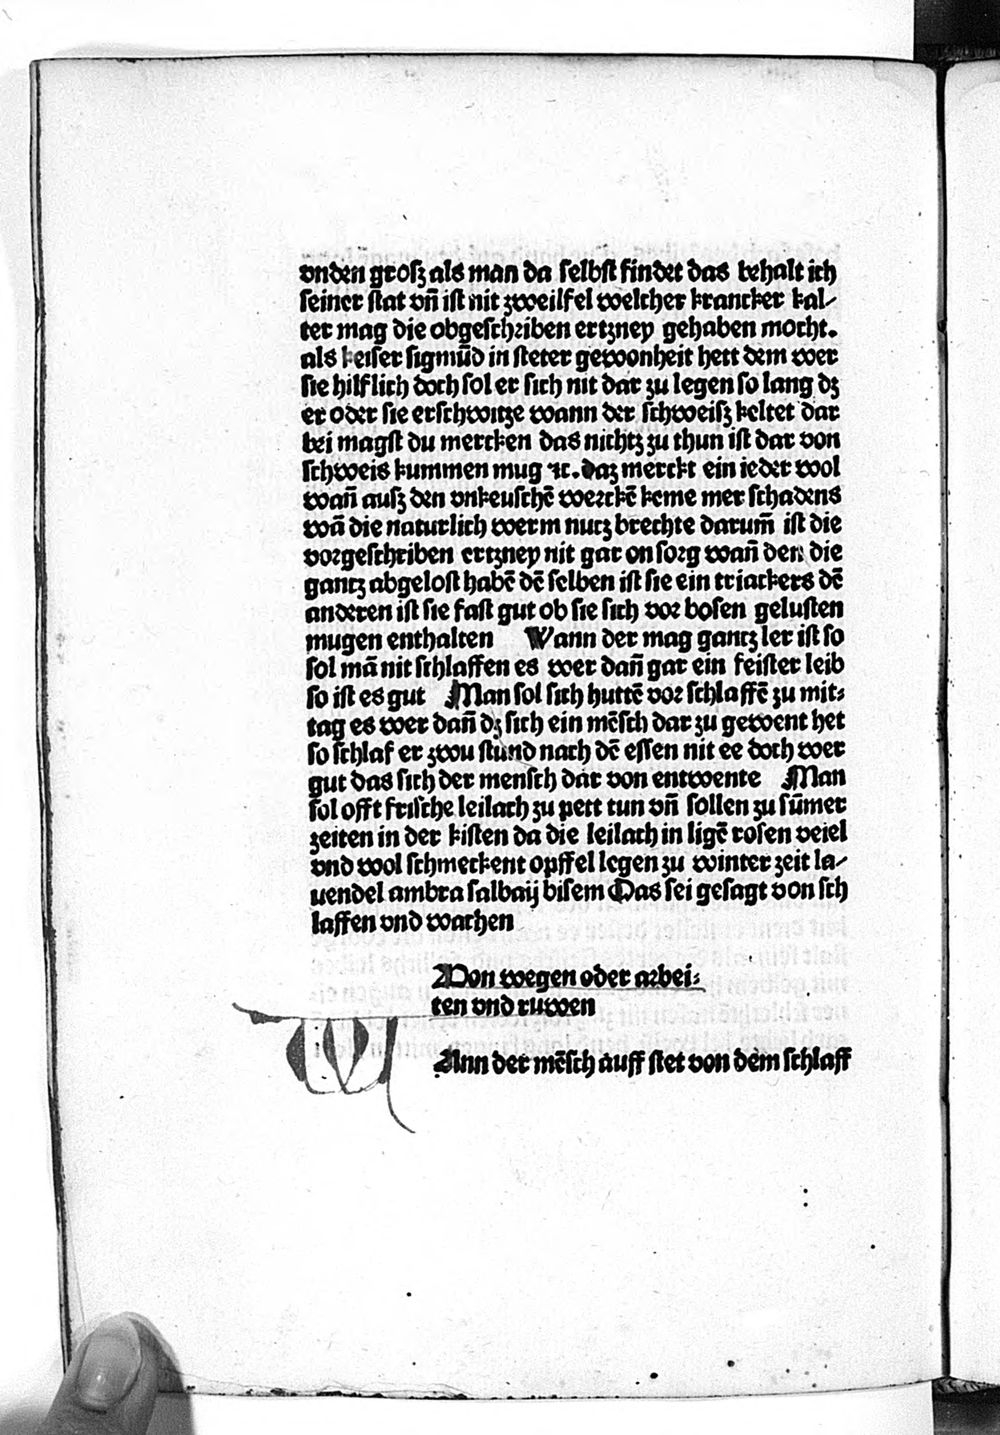 vnden groſz als man da ſelbſt findet das behalt ich
ſeiner ſtat vn̄ iſt nit zweilfel welcher krancker kal⸗
ter mag die obgeſchriben ertzney gehaben mocht.
als keiſer ſigmūd in ſteter gewonheit hett dem wer
ſie hilflich doch ſol er ſich nit dar zu legen ſo lang dz
er oder ſie erſchwitze wann der ſchweiſz keltet dar
bei magſt du mercken das nichtz zu thun iſt dar von
ſchweis kummen mug ⁊c. daz merckt ein ieder wol
wan̄ auſz den vnkeuſchē werckē keme mer ſchadens
wā die naturlich werm nutz brechte darum̄ iſt die
vorgeſchriben ertzney nit gar on ſorg wan̄ den die
gantz abgeloſt habē dē ſelben iſt ſie ein triackers dē
anderen iſt ſie faſt gut ob ſie ſich vor boſen geluſten
mugen enthalten Wann der mag gantz ler iſt ſo
ſol mā nit ſchlaffen es wer dan̄ gar ein feiſter leib
ſo iſt es gut Man ſol ſich huttē vor ſchlaffē zu mit⸗
tag es wer dan̄ dz ſich ein mēſch dar zu gewent het
ſo ſchlaf er zwu ſtund nach dē eſſen nit ee doch wer
gut das ſich der menſch dar von entwente Man
ſol offt friſche leilach zu pett tun vn̄ ſollen zu ſūmer
zeiten in der kiſten da die leilach in ligē roſen veiel
vnd wol ſchmeckent opffel legen zu winter zeit la⸗
uendel ambra ſalbaij biſem Das ſei geſagt von ſch
laffen vnd wachen
Von wegen oder arbei⸗
ten vnd ruwen
W Ann der mēſch auff ſtet von dem ſchlaff